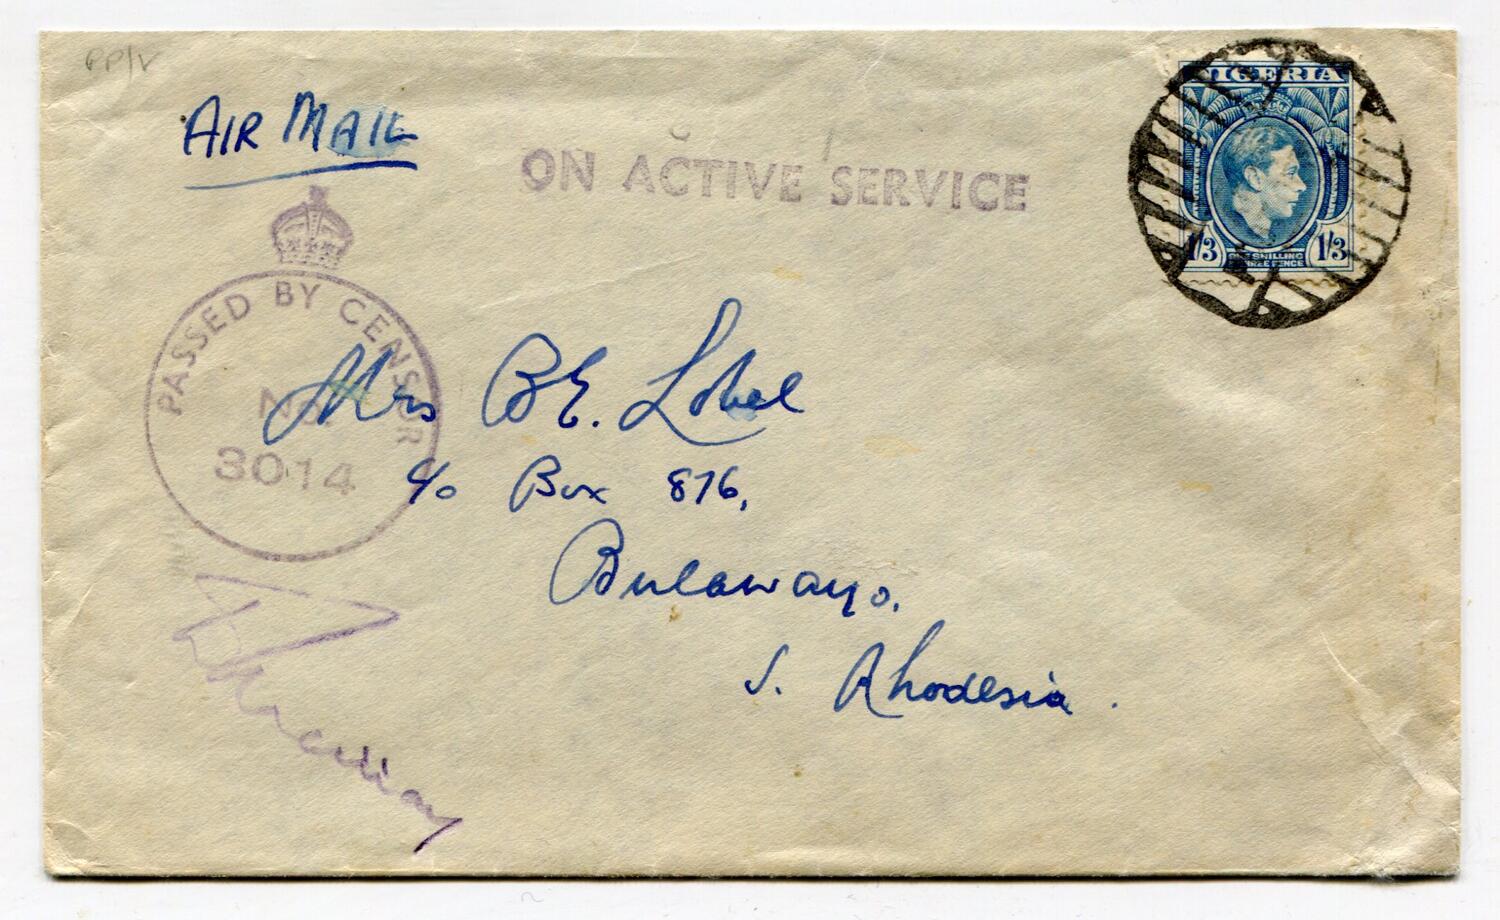 AIR MAIL
ON ACTIVE SERVICE
NIGERIA
1/3 ONE SHILLING THREE PENCE 1/3
PASSED BY CENSOR
No.
3014
Mrs B.E. Lobel
c/o Box 876,
Bulawayo.
S. Rhodesia.